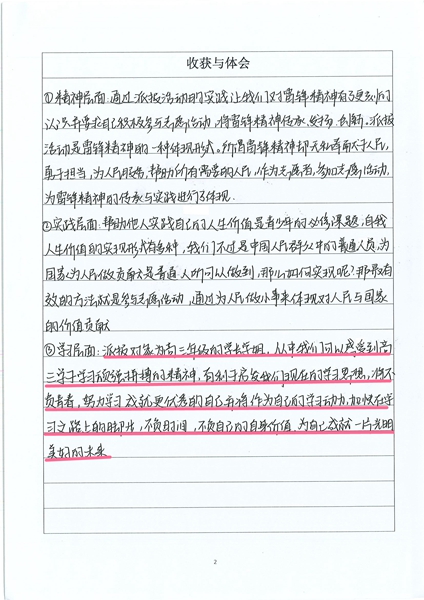 收获与体会
①精神层面:通过派报活动的实践让我们对雷锋精神有了更深刻的
认识并要求自己积极参与志愿活动,将雷锋精神传承、发扬、创新。派报
活动是雷锋精神的一种体现形式。所谓雷锋精神即无私奉献于人民,
勇于担当,为人民服务,帮助所有需要的人民,作为志愿者,参加志愿活动,
为雷锋精神的传承与实践进行了体现.
②实践层面:帮助他人实践自己的人生价值是青少年的必修课题,自我
人生价值的实现形式有多种,我们不过是中国人民群众中的普通人员,为
国家为人民做贡献是普通人所可以做到,那么如何实现呢?那最有
效的方法就是参与志愿活动,通过为人民做小事来体现对人民与国家
的价值贡献
③学习层面:派报对象为高三年级的学长学姐,从中我们可以感受到高
三学子学习顽强拼搏的精神,有利于启发我们现在的学习思想,将不
负青春,努力学习成就更优秀的自己并将作为自己的学习动力,加快在学
习之路上的脚步,不负时间,不负自己的自身价值,为自己成就一片光明
美好的未来
2